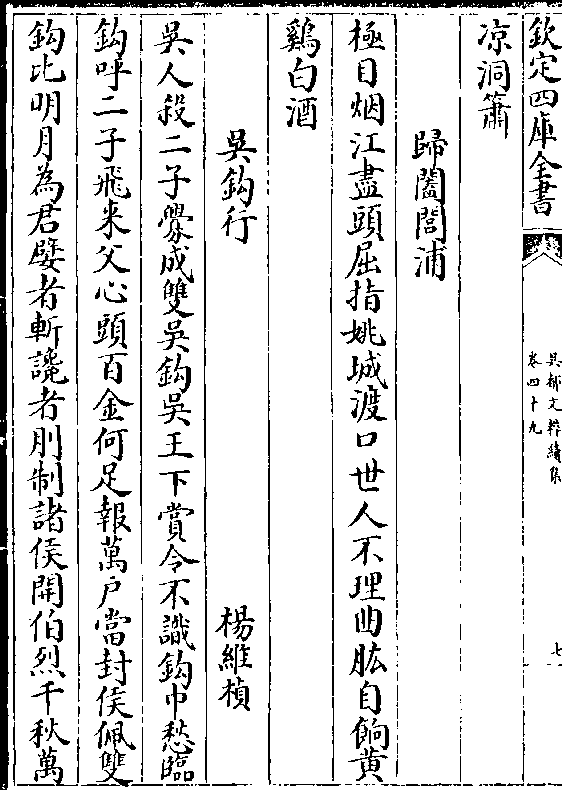 欽定四庫全書
吳都文粹續集
卷四十九
七
凉洞簫
歸闔閭浦
極目烟江盡頭屈指姚城渡口世人不理曲肱自餉黄
鷄白酒
吳鈎行
楊維楨
吳人殺二子釁成雙吳鈎吳王下賞令不識鈎巾愁臨
鈎呼二子飛来父心頭百金何足報萬户當封侯佩雙
鈎比明月為君嬖者斬讒者刖制諸侯開伯烈千秋萬